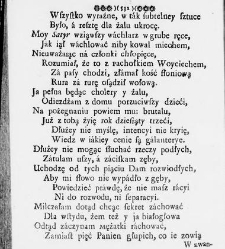 (132)
Wszystko wyraźne, w tak subtelney sztuce
Było, á resztę dla żalu ukrocę.
Moy Satyr wziąwszy wachlarz w grube ręce,
Jak iął wáchlować niby kował miechem,
Nieuważáiąc ná członki chłopięce,
Rozumiał, że to z rachoſkiem Woyciechem,
Zá paſy chodzi, złamał kość ſłoniową
Rura zá żart dziecinny
Ja pełna będąc cholery y żalu,
Odieżdżam z domu porzuciwſzy dzieći,
Ná pożegnaniu powiem mu: brutalu,
Już z tobą żyię rok dzieſiąty trzeći,
Dłużey nie myślę, intencyi nie kryię,
Wiedz w iákiey cenie ſą galanterye.
Dłużey nie mogąc ſłuchać rzeczy podłych,
Zátulam uſzy, á záciſkam zęby,
Uchodzę od tych pięciu Dam rozwiodłych,
Aby mi ſłowo nie wypádło z gęby,
Powiedzieć prawdę, że nie masz rácyi
Ni do rozwodu, ni ſeparacyi.
Milczałem dotąd chcąc ſekret záchować
Dla wſtydu, żem też y ja białogłowa
Odtąd záczynam mężatki ráchować,
Zamiaſt pięć Panien głupich, co ie zowią
W ewan-